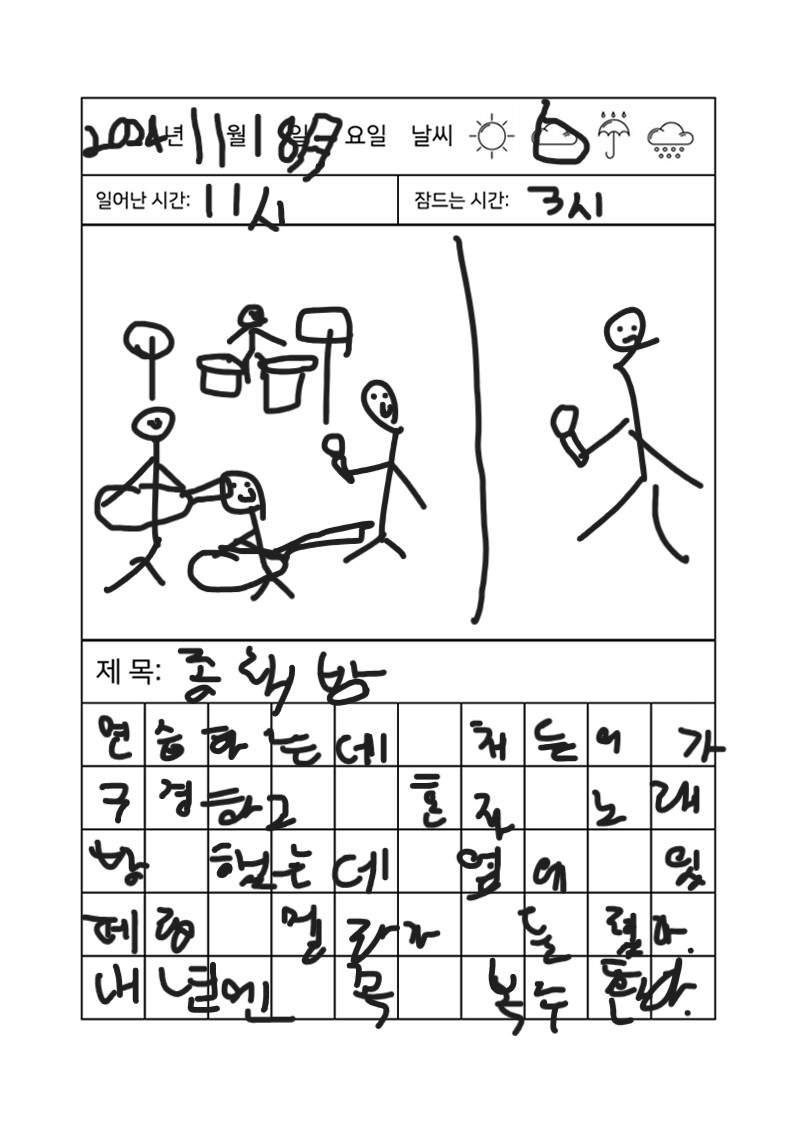 2024년 11월 18일 月 요일 날씨
일어난 시간: 11시 잠드는 시간: 3시
제 목: 종책밤
연습하는데 처든이가
구경하고 혼자 노래
방 헜는데 옆에 있
페랑 멜라가 들렸다.
내년엔 꼭 복수한다.